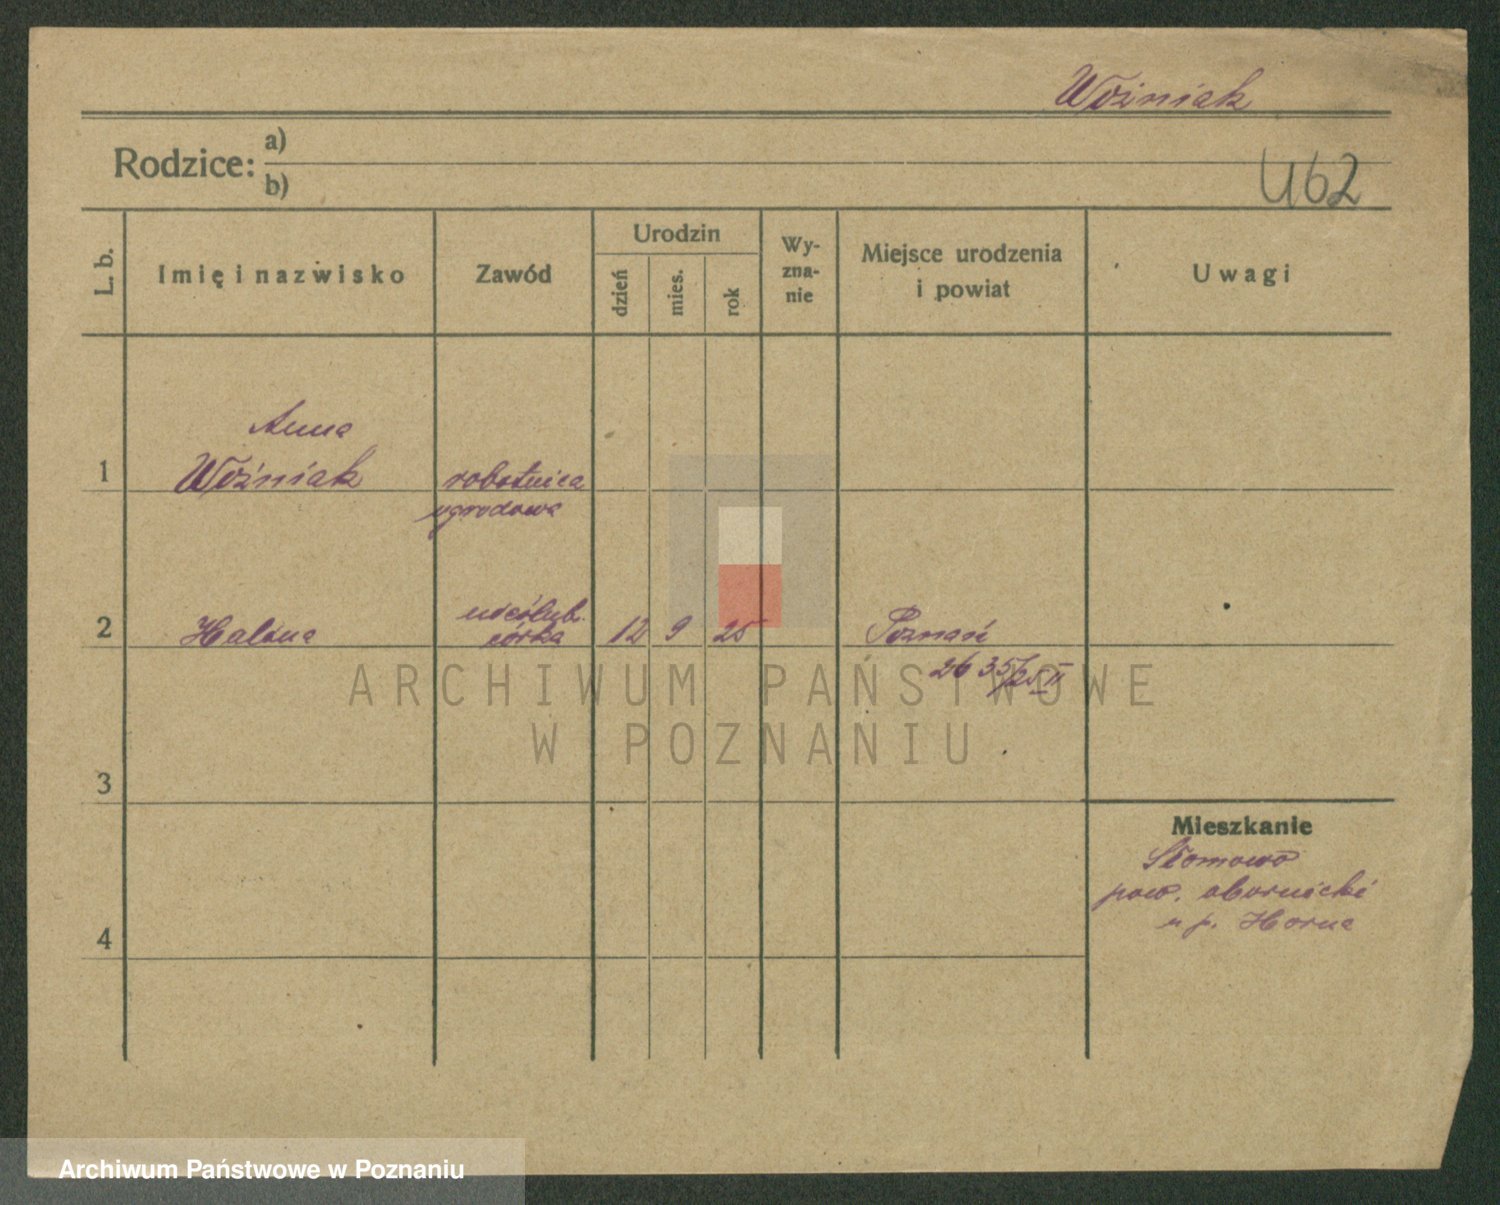 Woźniak
Rodzice: a)
b)
462
L. b.
Imię i nazwisko
Zawód
Urodzin
dzień
mies.
rok
Wy-
zna-
nie
Miejsce urodzenia
i powiat
Uwagi
Anna
1 Woźniak robotnica
ogrodowa
nieślub.
2 Halina córka 12 9 25 Poznań
2635/25 II
ARCHIWUM PAŃSTWOWE
W POZNANIU
3
Mieszkanie
Słomowo
pow. obornicki
u p. Horna
4
Archiwum Państwowe w Poznaniu